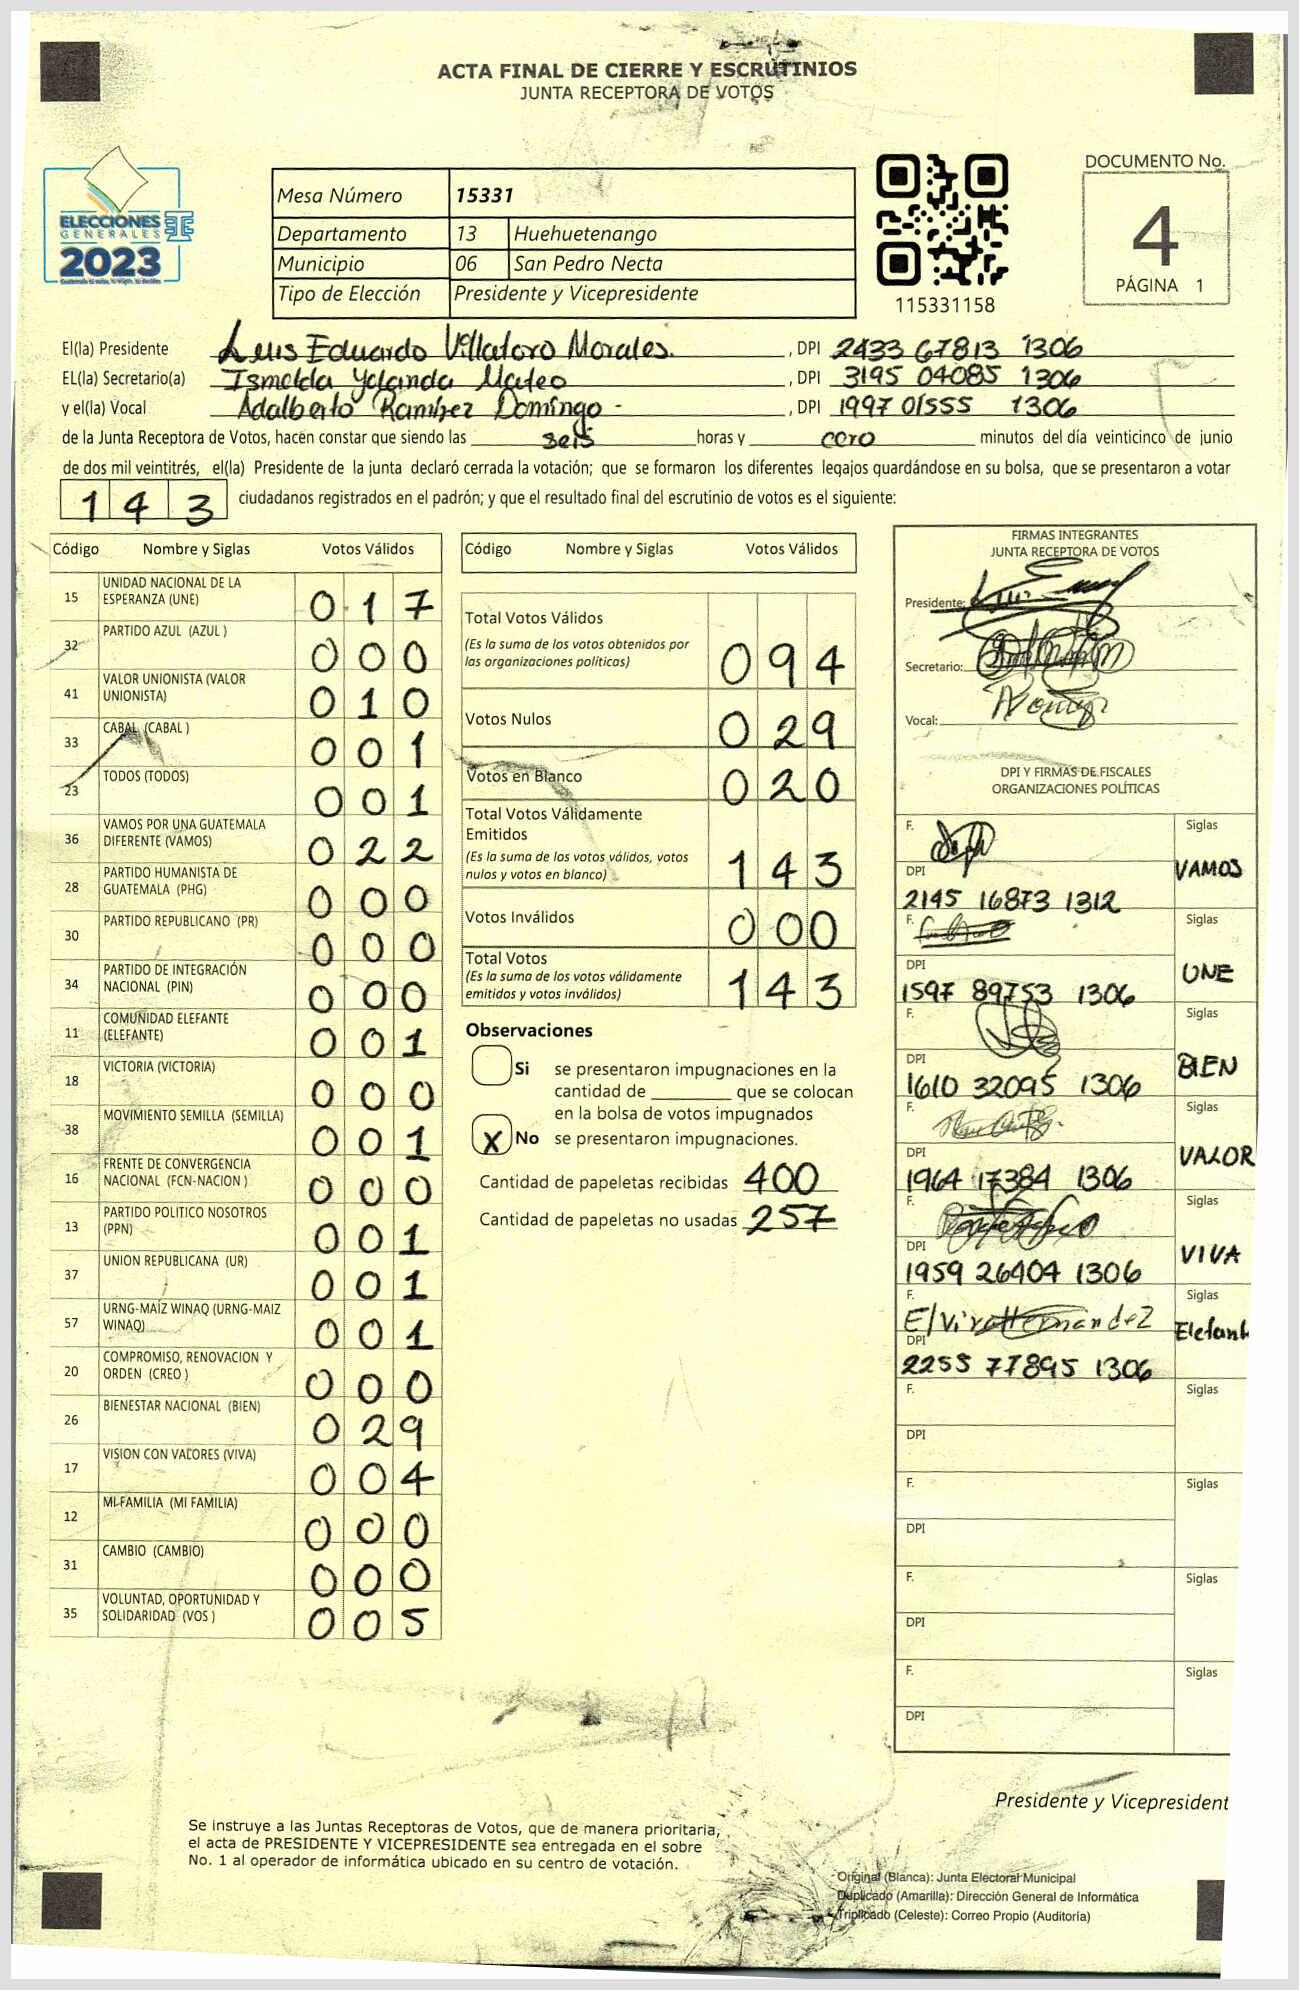 ACTA FINAL DE CIERRE Y ESCRUTINIOS
JUNTA RECEPTORA DE VOTOS
ELECCIONES
GENERALES
2023
Mesa Número 15331
Departamento 13 Huehuetenango
Municipio 06 San Pedro Necta
Tipo de Elección Presidente y Vicepresidente
115331158
DOCUMENTO No.
4
PÁGINA 1
El(la) Presidente Luis Eduardo Villatoro Morales. , DPI 2433 67813 1306
EL(la) Secretario(a) Ismelda Yolanda Mateo , DPI 3195 04085 1306
y el(la) Vocal Adalberto Ramírez Domingo - , DPI 1997 01555 1306
de la Junta Receptora de Votos, hacen constar que siendo las seis horas y cero minutos del día veinticinco de junio
de dos mil veintitrés, el(la) Presidente de la junta declaró cerrada la votación; que se formaron los diferentes legajos guardándose en su bolsa, que se presentaron a votar
143 ciudadanos registrados en el padrón; y que el resultado final del escrutinio de votos es el siguiente:
Código Nombre y Siglas Votos Válidos
15 UNIDAD NACIONAL DE LA ESPERANZA (UNE) 017
32 PARTIDO AZUL (AZUL ) 000
41 VALOR UNIONISTA (VALOR UNIONISTA) 010
33 CABAL (CABAL ) 001
23 TODOS (TODOS) 001
36 VAMOS POR UNA GUATEMALA DIFERENTE (VAMOS) 022
28 PARTIDO HUMANISTA DE GUATEMALA (PHG) 000
30 PARTIDO REPUBLICANO (PR) 000
34 PARTIDO DE INTEGRACIÓN NACIONAL (PIN) 000
11 COMUNIDAD ELEFANTE (ELEFANTE) 001
18 VICTORIA (VICTORIA) 000
38 MOVIMIENTO SEMILLA (SEMILLA) 001
16 FRENTE DE CONVERGENCIA NACIONAL (FCN-NACION ) 000
13 PARTIDO POLITICO NOSOTROS (PPN) 001
37 UNION REPUBLICANA (UR) 001
57 URNG-MAÍZ WINAQ (URNG-MAIZ WINAQ) 001
20 COMPROMISO, RENOVACION Y ORDEN (CREO ) 000
26 BIENESTAR NACIONAL (BIEN) 029
17 VISION CON VALORES (VIVA) 004
12 MI FAMILIA (MI FAMILIA) 000
31 CAMBIO (CAMBIO) 000
35 VOLUNTAD, OPORTUNIDAD Y SOLIDARIDAD (VOS ) 005
Código Nombre y Siglas Votos Válidos
Total Votos Válidos
(Es la suma de los votos obtenidos por
las organizaciones políticas) 094
Votos Nulos 029
Votos en Blanco 020
Total Votos Válidamente
Emitidos
(Es la suma de los votos válidos, votos
nulos y votos en blanco) 143
Votos Inválidos 000
Total Votos
(Es la suma de los votos válidamente
emitidos y votos inválidos) 143
Observaciones
Si se presentaron impugnaciones en la
cantidad de ________ que se colocan
en la bolsa de votos impugnados
X No se presentaron impugnaciones.
Cantidad de papeletas recibidas 400
Cantidad de papeletas no usadas 257
FIRMAS INTEGRANTES
JUNTA RECEPTORA DE VOTOS
Presidente:
Secretario:
Vocal:
DPI Y FIRMAS DE FISCALES
ORGANIZACIONES POLÍTICAS
F. Siglas
DPI VAMOS
2145 16873 1312
F. Siglas
DPI UNE
1597 89753 1306
F. Siglas
DPI BIEN
1610 32095 1306
F. Siglas
DPI VALOR
1964 17384 1306
F. Siglas
DPI VIVA
1959 26404 1306
F. Siglas
Elvira Hernandez
DPI Elefant
2255 77895 1306
F. Siglas
DPI
F. Siglas
DPI
F. Siglas
DPI
F. Siglas
DPI
Presidente y Vicepresident
Se instruye a las Juntas Receptoras de Votos, que de manera prioritaria,
el acta de PRESIDENTE Y VICEPRESIDENTE sea entregada en el sobre
No. 1 al operador de informática ubicado en su centro de votación.
Original (Blanca): Junta Electoral Municipal
Duplicado (Amarilla): Dirección General de Informática
Triplicado (Celeste): Correo Propio (Auditoría)